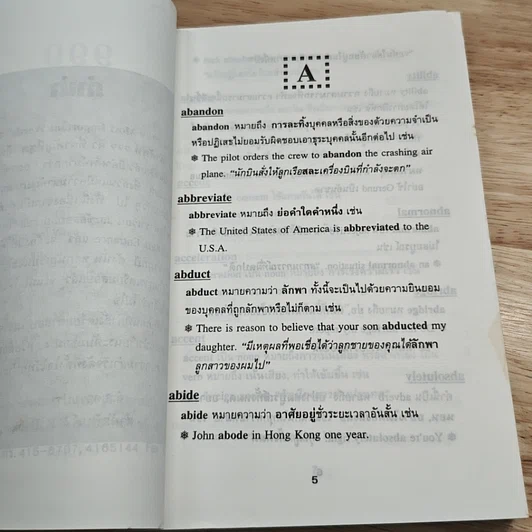 A
abandon
abandon หมายถึง การละทิ้งบุคคลหรือสิ่งของด้วยความจำเป็น
หรือปฏิเสธไม่ยอมรับผิดชอบเอาธุระบุคคลนั้นอีกต่อไป เช่น
❄ The pilot orders the crew to abandon the crashing air
plane. "นักบินสั่งให้ลูกเรือสละเครื่องบินที่กำลังจะตก"
abbreviate
abbreviate หมายถึง ย่อคำใดคำหนึ่ง เช่น
❄ The United States of America is abbreviated to the
U.S.A.
abduct
abduct หมายความว่า ลักพา ทั้งนี้จะเป็นไปด้วยความยินยอม
ของบุคคลที่ถูกลักพาหรือไม่ก็ตาม เช่น
❄ There is reason to believe that your son abducted my
daughter. "มีเหตุผลที่พอเชื่อได้ว่าลูกชายของคุณได้ลักพา
ลูกสาวของผมไป"
abide
abide หมายความว่า อาศัยอยู่ชั่วระยะเวลาอันสั้น เช่น
❄ John abode in Hong Kong one year.
5